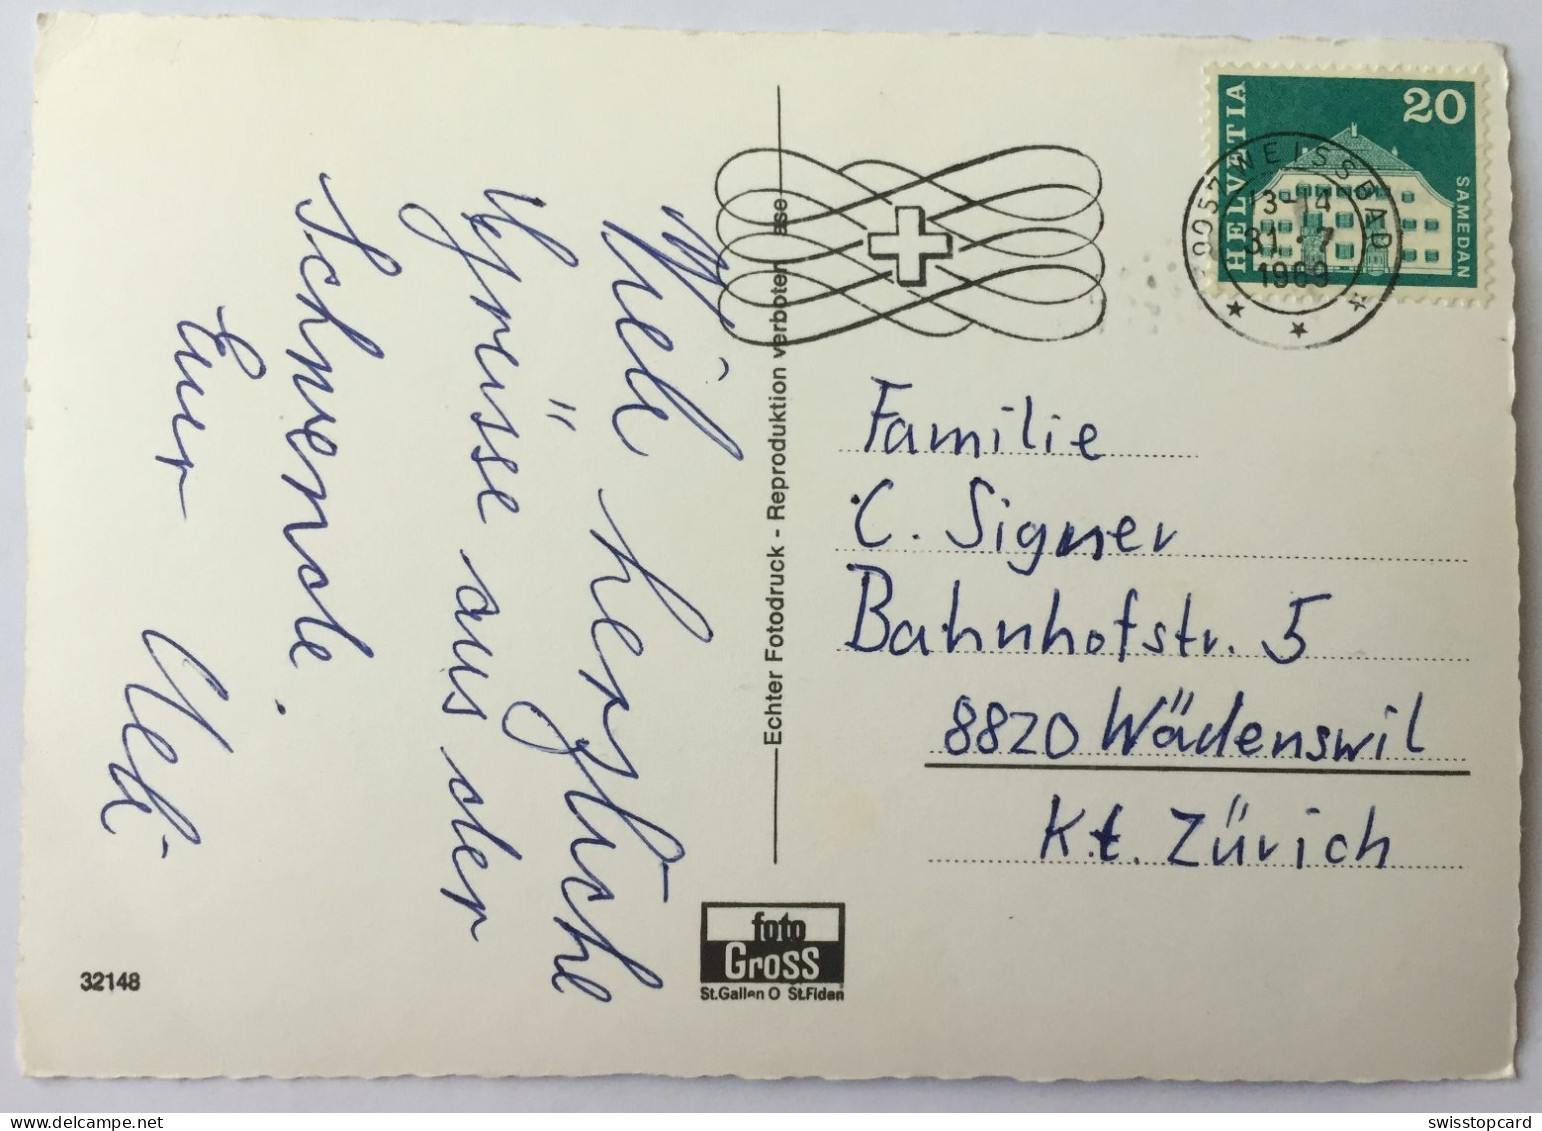 Viele herzliche
Grüsse aus der
Schwende.
Euer Ueli
Echter Fotodruck - Reproduktion verboten
HELVETIA
20
SAMEDAN
9057 WEISSBAD
13-14
31.-7
1969
Familie
C. Signer
Bahnhofstr. 5
8820 Wädenswil
Kt. Zürich
foto
Gross
St.Gallen O St.Fiden
32148
swisstopcard